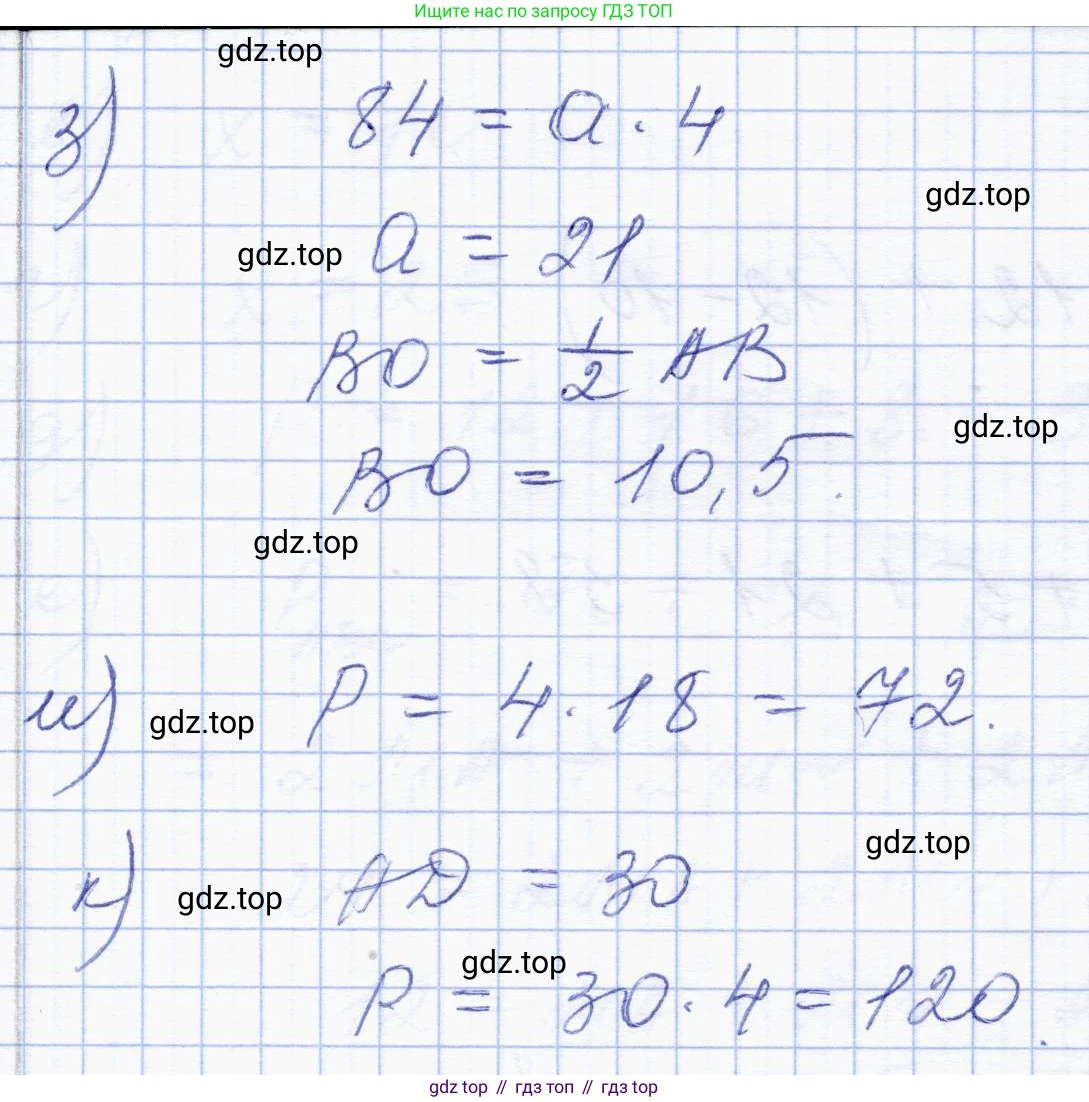 Ищите нас по запросу ГДЗ ТОП
gdz.top
з) 84 = a · 4
gdz.top
gdz.top
a = 21
BO = 1/2 AB
gdz.top
BO = 10,5.
gdz.top
и) gdz.top P = 4 · 18 = 72.
gdz.top
к) gdz.top AD = 30
gdz.top
P = 30 · 4 = 120.
gdz top // гдз топ // gdz top